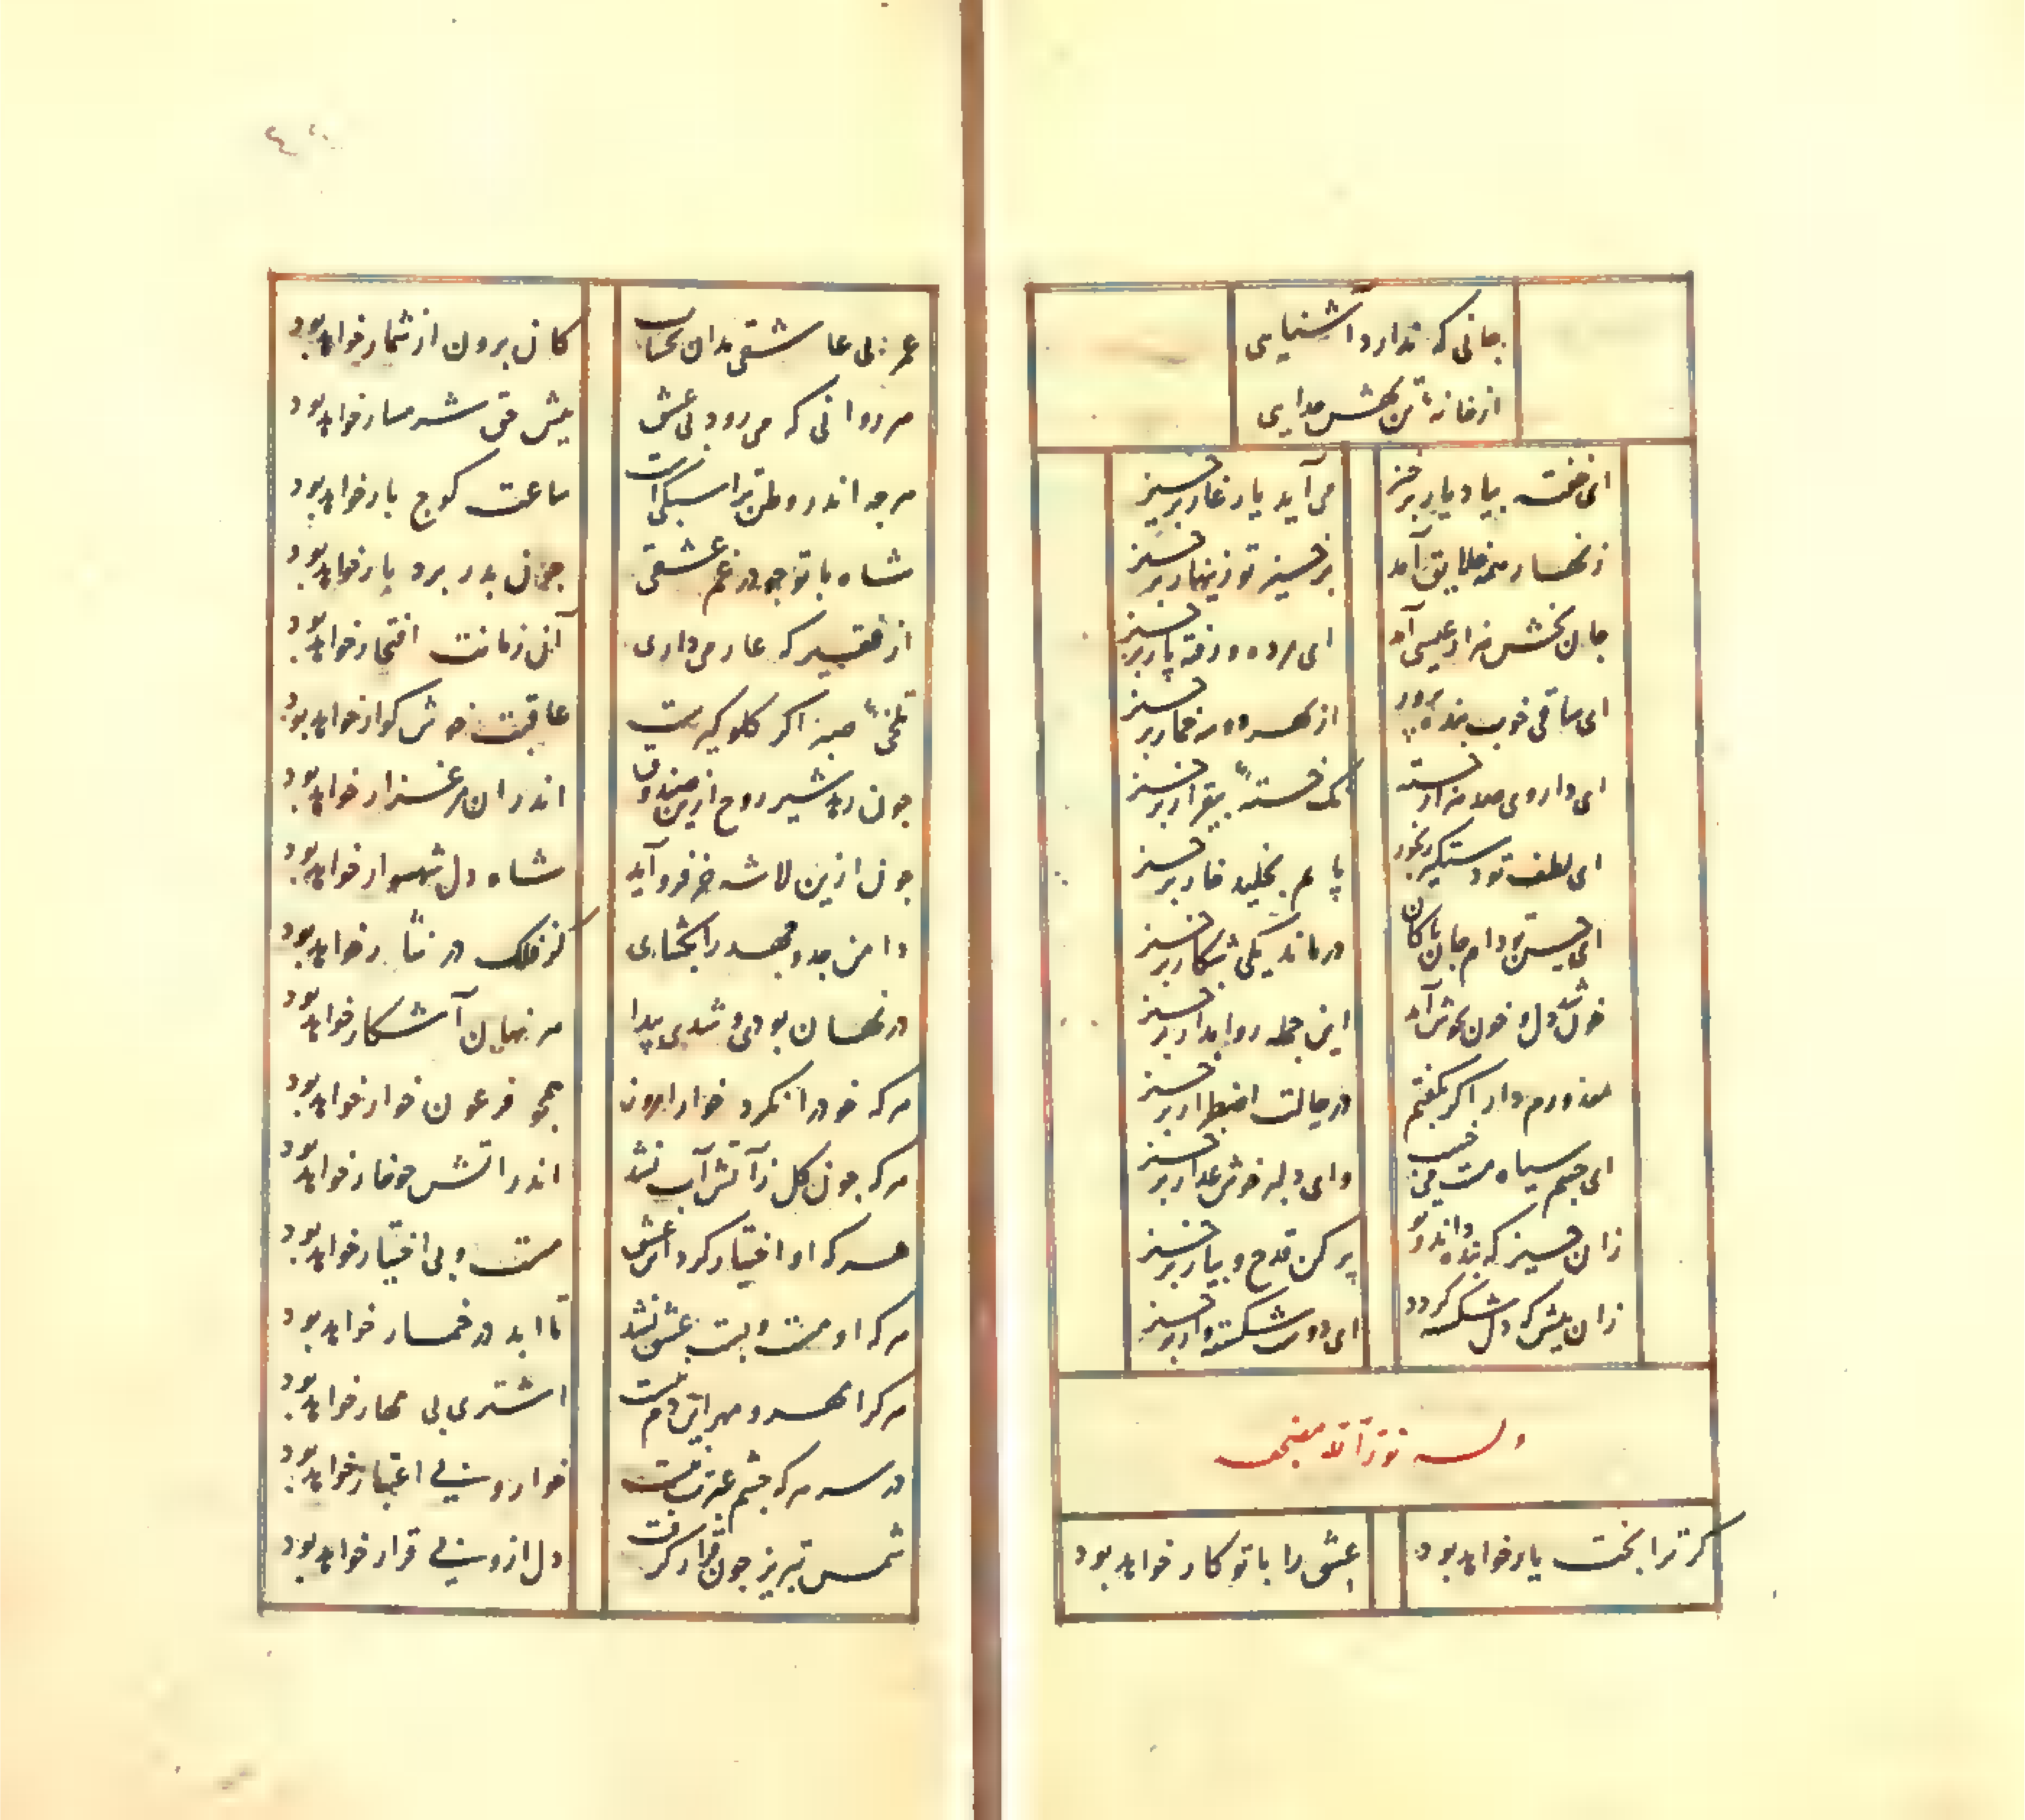 جانی که ندارد آشنایی
از خانهٔ تن بهش جدایی
ای خفته بیاد یار برخیز می‌آید یار غار برخیز
زنهار ده خلایق آمد برخیز تو زینهار برخیز
جان بخش هزار عیسی آمد ای مرده و رفته پار برخیز
ای ساقی خوب بنده پرور از بهر دو سه خمار برخیز
ای داروی صد هزار خسته نک خستهٔ بیقرار برخیز
ای لطف تو دستگیر رنجور پایم بخلید خار برخیز
ای حسن تو دام جان پاکان درماند یکی شکار برخیز
خون شد دل و خون بجوش آمد این جمله روا مدار برخیز
معذورم دار اگر بگفتم در حالت اضطرار برخیز
ای چشم سیاه مست می خسب وای دلبر خوش عذار برخیز
زان چیز که بنده داند و تو پر کن قدح و بیار برخیز
زان پیش که دل شکسته گردد ای دوست شکسته وار برخیز
وله نور الله مضجعه
گر ترا بخت یار خواهد بود عشق را با تو کار خواهد بود
عمر بی عاشقی مدان بحساب کان برون از شمار خواهد بود
هر زمانی که می رود بی عشق پیش حق شرمسار خواهد بود
هرچه اندر وطن ترا سبکیست ساعت کوچ بار خواهد بود
شاه با تو چو در غم عشقی چون پدر بردبار خواهد بود
از فقیر که عار می داری آن زمانت افتخار خواهد بود
تلخیٔ صبر اگر گلوگیرست عاقبت خوش گوار خواهد بود
چون رهد شیر روح ازین صندوق اندر ان مرغزار خواهد بود
چون ازین لاشه خر فرود آید شاه دل شهسوار خواهد بود
دامن جد و جهد را بگشای کز فلک در نثار خواهد بود
در نهان بودی و شدی پیدا هر نهان آشکار خواهد بود
هرکه خود را نکرد خوار امروز همچو فرعون خوار خواهد بود
هرکه چون گل ز آتش آب نشد اندر اتش چو خار خواهد بود
هرکه او اختیار کرد این عشق مست و بی اختیار خواهد بود
هرکه او مست و پست عشق نشد تا ابد در خمار خواهد بود
هرکرا مهر و مهر این دم نیست اشتری بی مهار خواهد بود
در سر هرکه چشم عبرت نیست خوار و بی اعتبار خواهد بود
شمس تبریز چون قرار گرفت دل ازو بی قرار خواهد بود